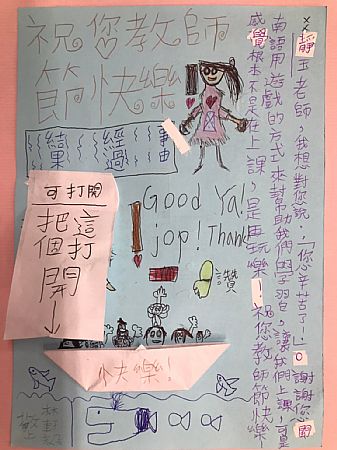 祝您教師
節快樂
靜玉老師,我想對您說:「你辛苦了!」。謝謝您閩
南語用遊戲的方式來幫助我們學習,讓我們上課,
感覺根本不是在上課,是再玩樂!祝您教師節快樂!
事由
經過
結果
可打開
把這
個打
開
Good Ya!
jop! Thank!
讚
快樂!
敬上